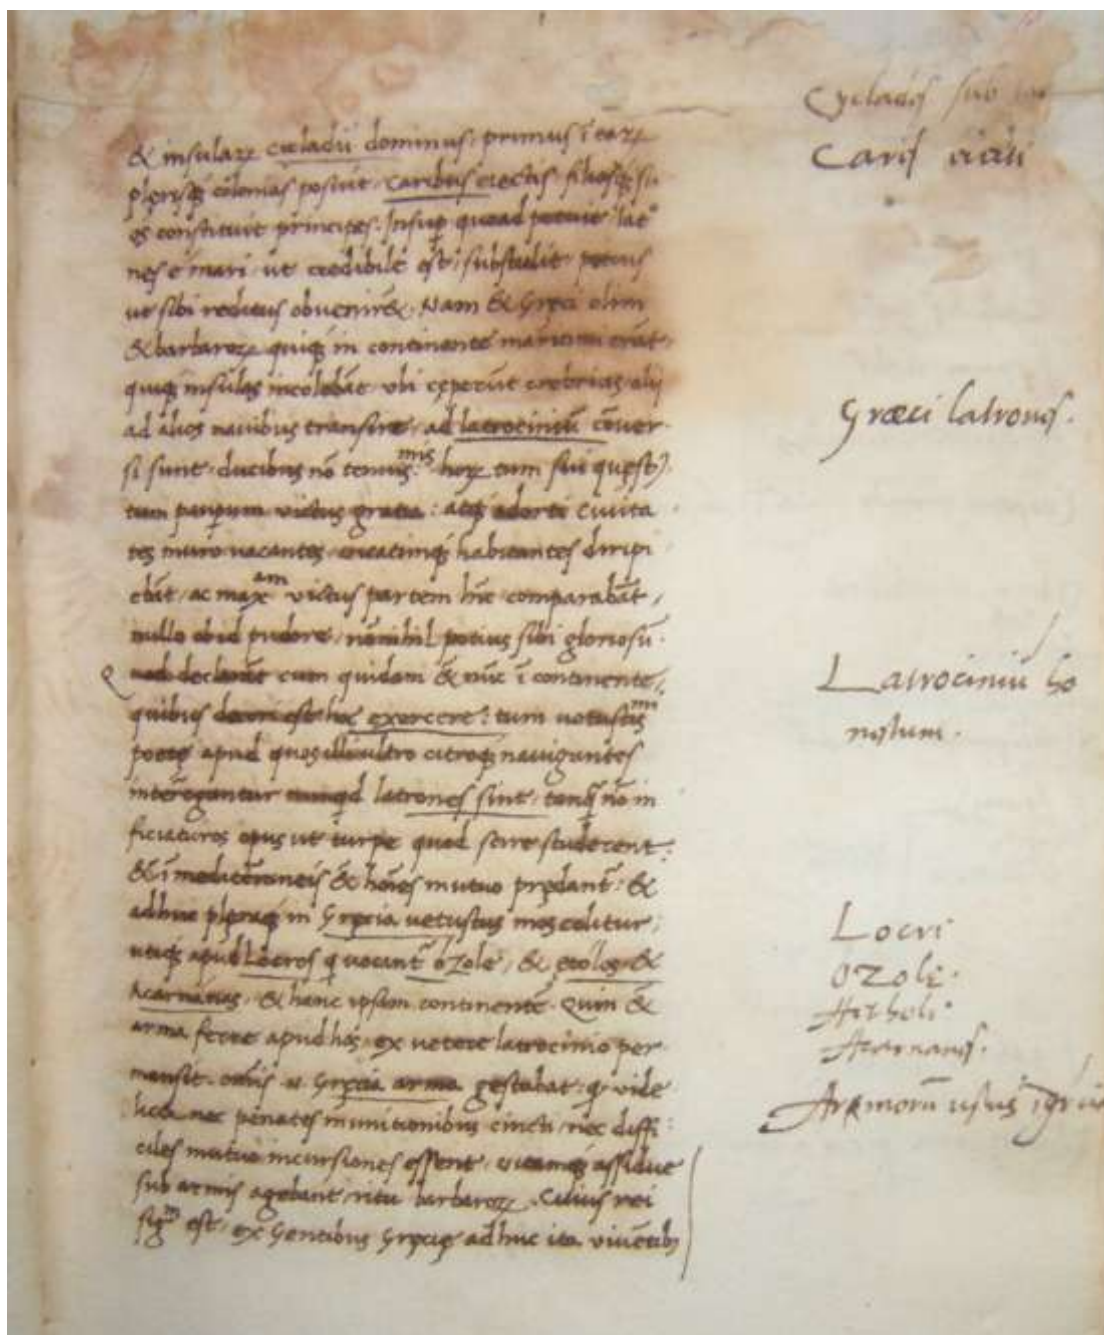 Cycladis sub
Caris
& insulaꝝ cicladũ dominus: primus ĩ eaꝝ
plęrisq; colonias posuit. Caribus eiectis filiosq; su
os constituit principes. Insup quoad potuit lat°
nes e mari ut credibile est: substulit potius
ut sibi reditus obvenirẽt. Nam & Gręci olim
& barbaroꝝ quiq; in continente maritimi erãt.
quiq; insulas incolebãt. ubi cęperũt crebrius alij
ad alios navibus transire. ad latrociniũ cõver
si sunt. ducibus nõ tenuis.mis hoꝝ tum sui quęst9.
tum paupum victus gratia: atq; adorti civita
tes muro vacantes. vicatimq; habitantes diripi
ebãt. ac maxam victus partem hĩc comparabãt,
nullo ob id pudore. nõnihil potius sibi gloriosũ.
Q
uod declarãt cum quidam & nũc ĩ continente,
quibus decori est hoc exercere: tum vetustismi
poetę apud quos illi ultro citroq; navigantes
interogantur nunqd latrones sint. tanq̃ nõ in
ficiaturos opus ut turpe quod scire studerent:
& ĩ mediterraneis & hoĩes mutuo prędant: &
adhuc plęraq; in Gręcia vetustus mos colitur.
utiq; apud Locros q vocant oZole, & ętolos &
Acarnãnas. & hanc ipsam continentẽ. Quin &
arma ferre apud hos ex vetere latrocinio per
mansit. omĩs .n. Gręcia arma gestabat. q vide
licet nec penates munitionibus cincti. nec diffi
ciles mutuo incursiones essent. vitamq; assidue
sub armis agebant. ritu barbaroꝝ. Cuius rei
sigm est. ex Gentibus Gręcię adhuc ita viventib9
Græci latrones.
Latrociniũ ho
nestum.
Locri
OZolę.
Aetholi.
Acarnanes.
Armorũ usus